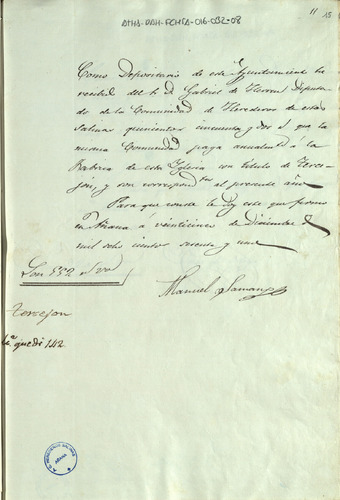 ATHA-DAH-FCHSA-016-032-08
11 15
Como Depositario de este Ayuntamiento he
recibido del Sr. D. Gabriel de Herran Diputa-
do de la Comunidad de Herederos de estas
Salinas quinientos cincuenta y dos rs. que la
misma Comunidad paga anualmte. á la
Fabrica de esta Iglesia con título de Terce-
jon, y son correspondtes. al presente año
Para que conste le doy este que firmo
en Añana á veinticinco de Diciembre de
mil ocho cientos sesenta y uno
Son 552 rs. vn.
Manuel Samang
Tercejon
142